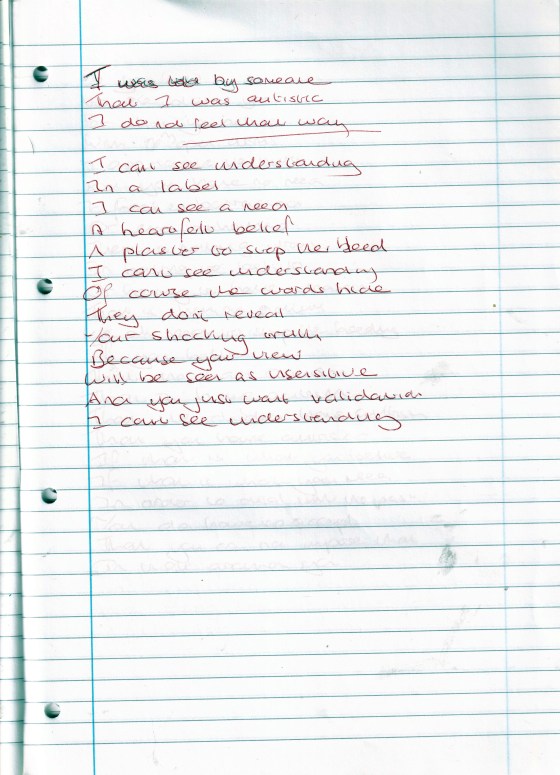 I was told by someone
That I was autistic
I do not feel that way
I cant see understanding
In a label
I can see a need
A heartfelt belief
A plaster to stop the bleed
I cant see understanding
Of course the words hide
They dont reveal
Your shocking truth
Because your view
Will be seen as insensitive
And you just want validation
I cant see understanding